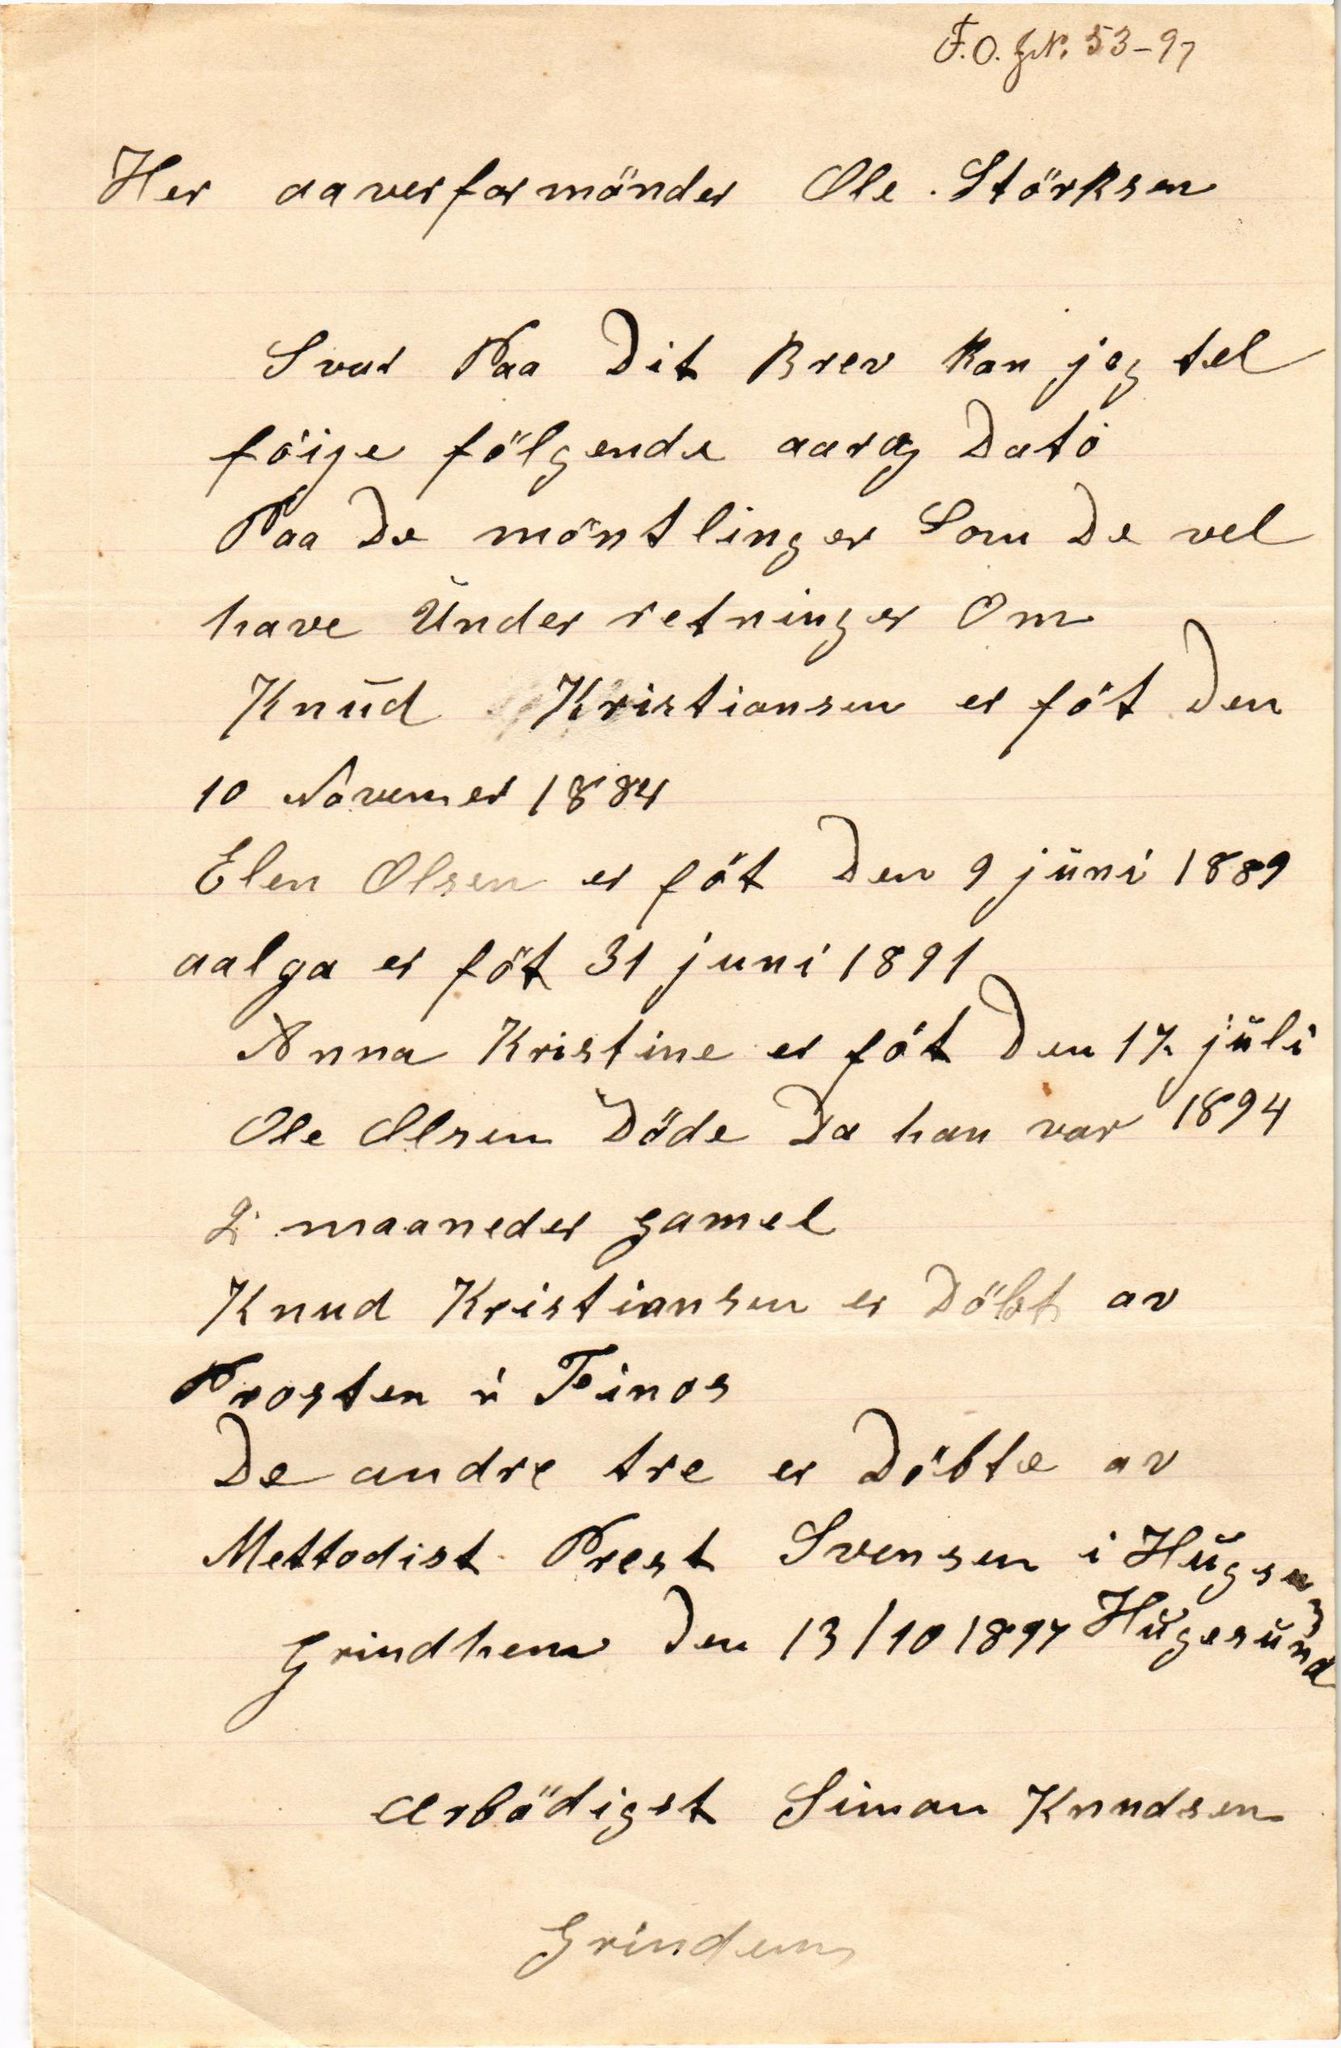 F.O. JN. 53-97
Her aaverformönder Ole Störksen
Svar Paa Dit Brev kan jeg tel
föije fölgende aar og Dato
Paa De möntlinger Som De vel
have Under retninger Om
Knud Kristiansen er föt Den
10 Novemer 1884
Elen Olsen er föt Den 9 juni 1889
aalga er föt 31 juni 1891
Anna Kristine er föt Den 17 juli
1894
Ole Olsen Döde Da han var
2 maaneder gamel
Knud Kristiansen er Döbt av
Prosten i Finos
De andre tre er Döbte av
Mettodist Prest Svensen i
Grindhem Den 13/10 1897 Hugesund
Arbödigst Simon Knudsen
Grindem